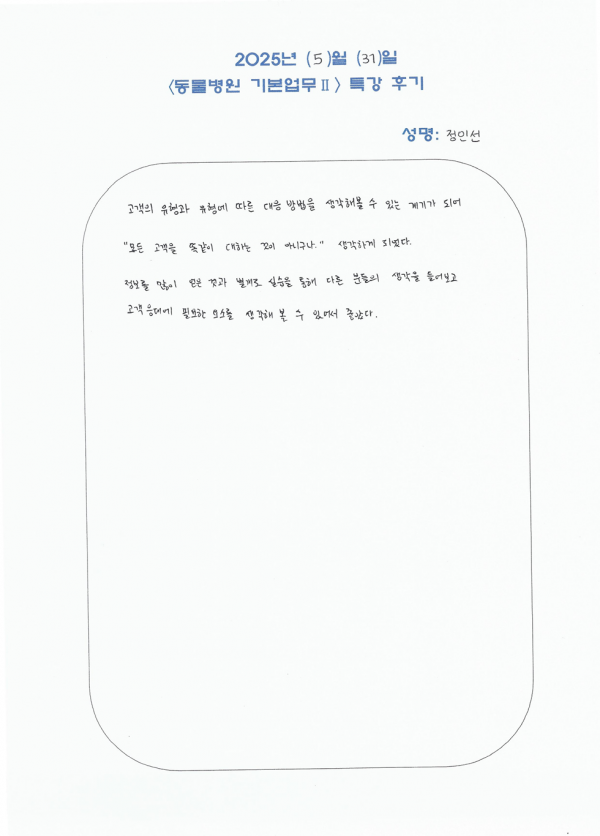 2025년 (5)월 (31)일
〈동물병원 기본업무Ⅱ〉 특강 후기
성명: 정인선
고객의 유형과 유형에 따른 대응 방법을 생각해볼 수 있는 계기가 되어
"모든 고객을 똑같이 대하는 것이 아니구나." 생각하게 되었다.
정보를 많이 얻은 것과 별개로 실습을 통해 다른 분들의 생각을 들어보고
고객응대에 필요한 요소를 생각해 볼 수 있어서 좋았다.